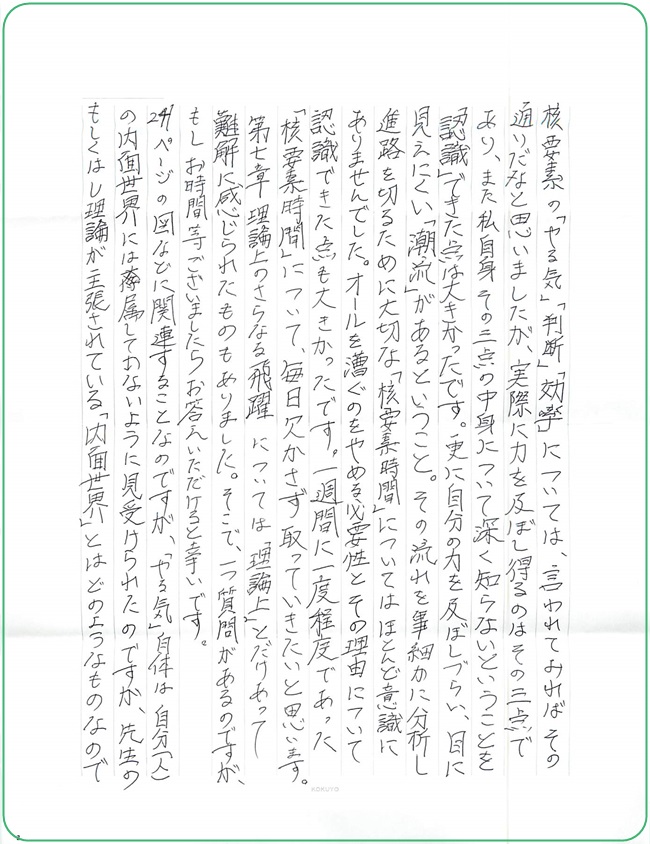 核要素の「やる気」「判断」「効率」については、言われてみればその
通りだなと思いましたが、実際に力を及ぼし得るのはその三点で
あり、また私自身その三点の中身について深く知らないということを
「認識」できた点は大きかったです。更に自分の力を及ぼしづらい、目に
見えにくい「潮流」があるということ。その流れを事細かに分析し
進路を切るために大切な「核要素時間」についてはほとんど意識に
ありませんでした。オールを漕ぐのをやめる必要性とその理由について
認識できた点も大きかったです。一週間に一度程度であった
「核要素時間」について、毎日欠かさず取っていきたいと思います。
第七章 理論上のさらなる飛躍 については「理論上」とだけあって
難解に感じられたものもありました。そこで、一つ質問があるのですが、
もしお時間等ございましたらお答えいただけると幸いです。
241ページの図などに関連することなのですが、「やる気」自体は自分(人)
の内面世界には帰属しておないように見受けられたのですが、先生の
もしくはし理論が主張されている「内面世界」とはどのようなものなので
KOKUYO